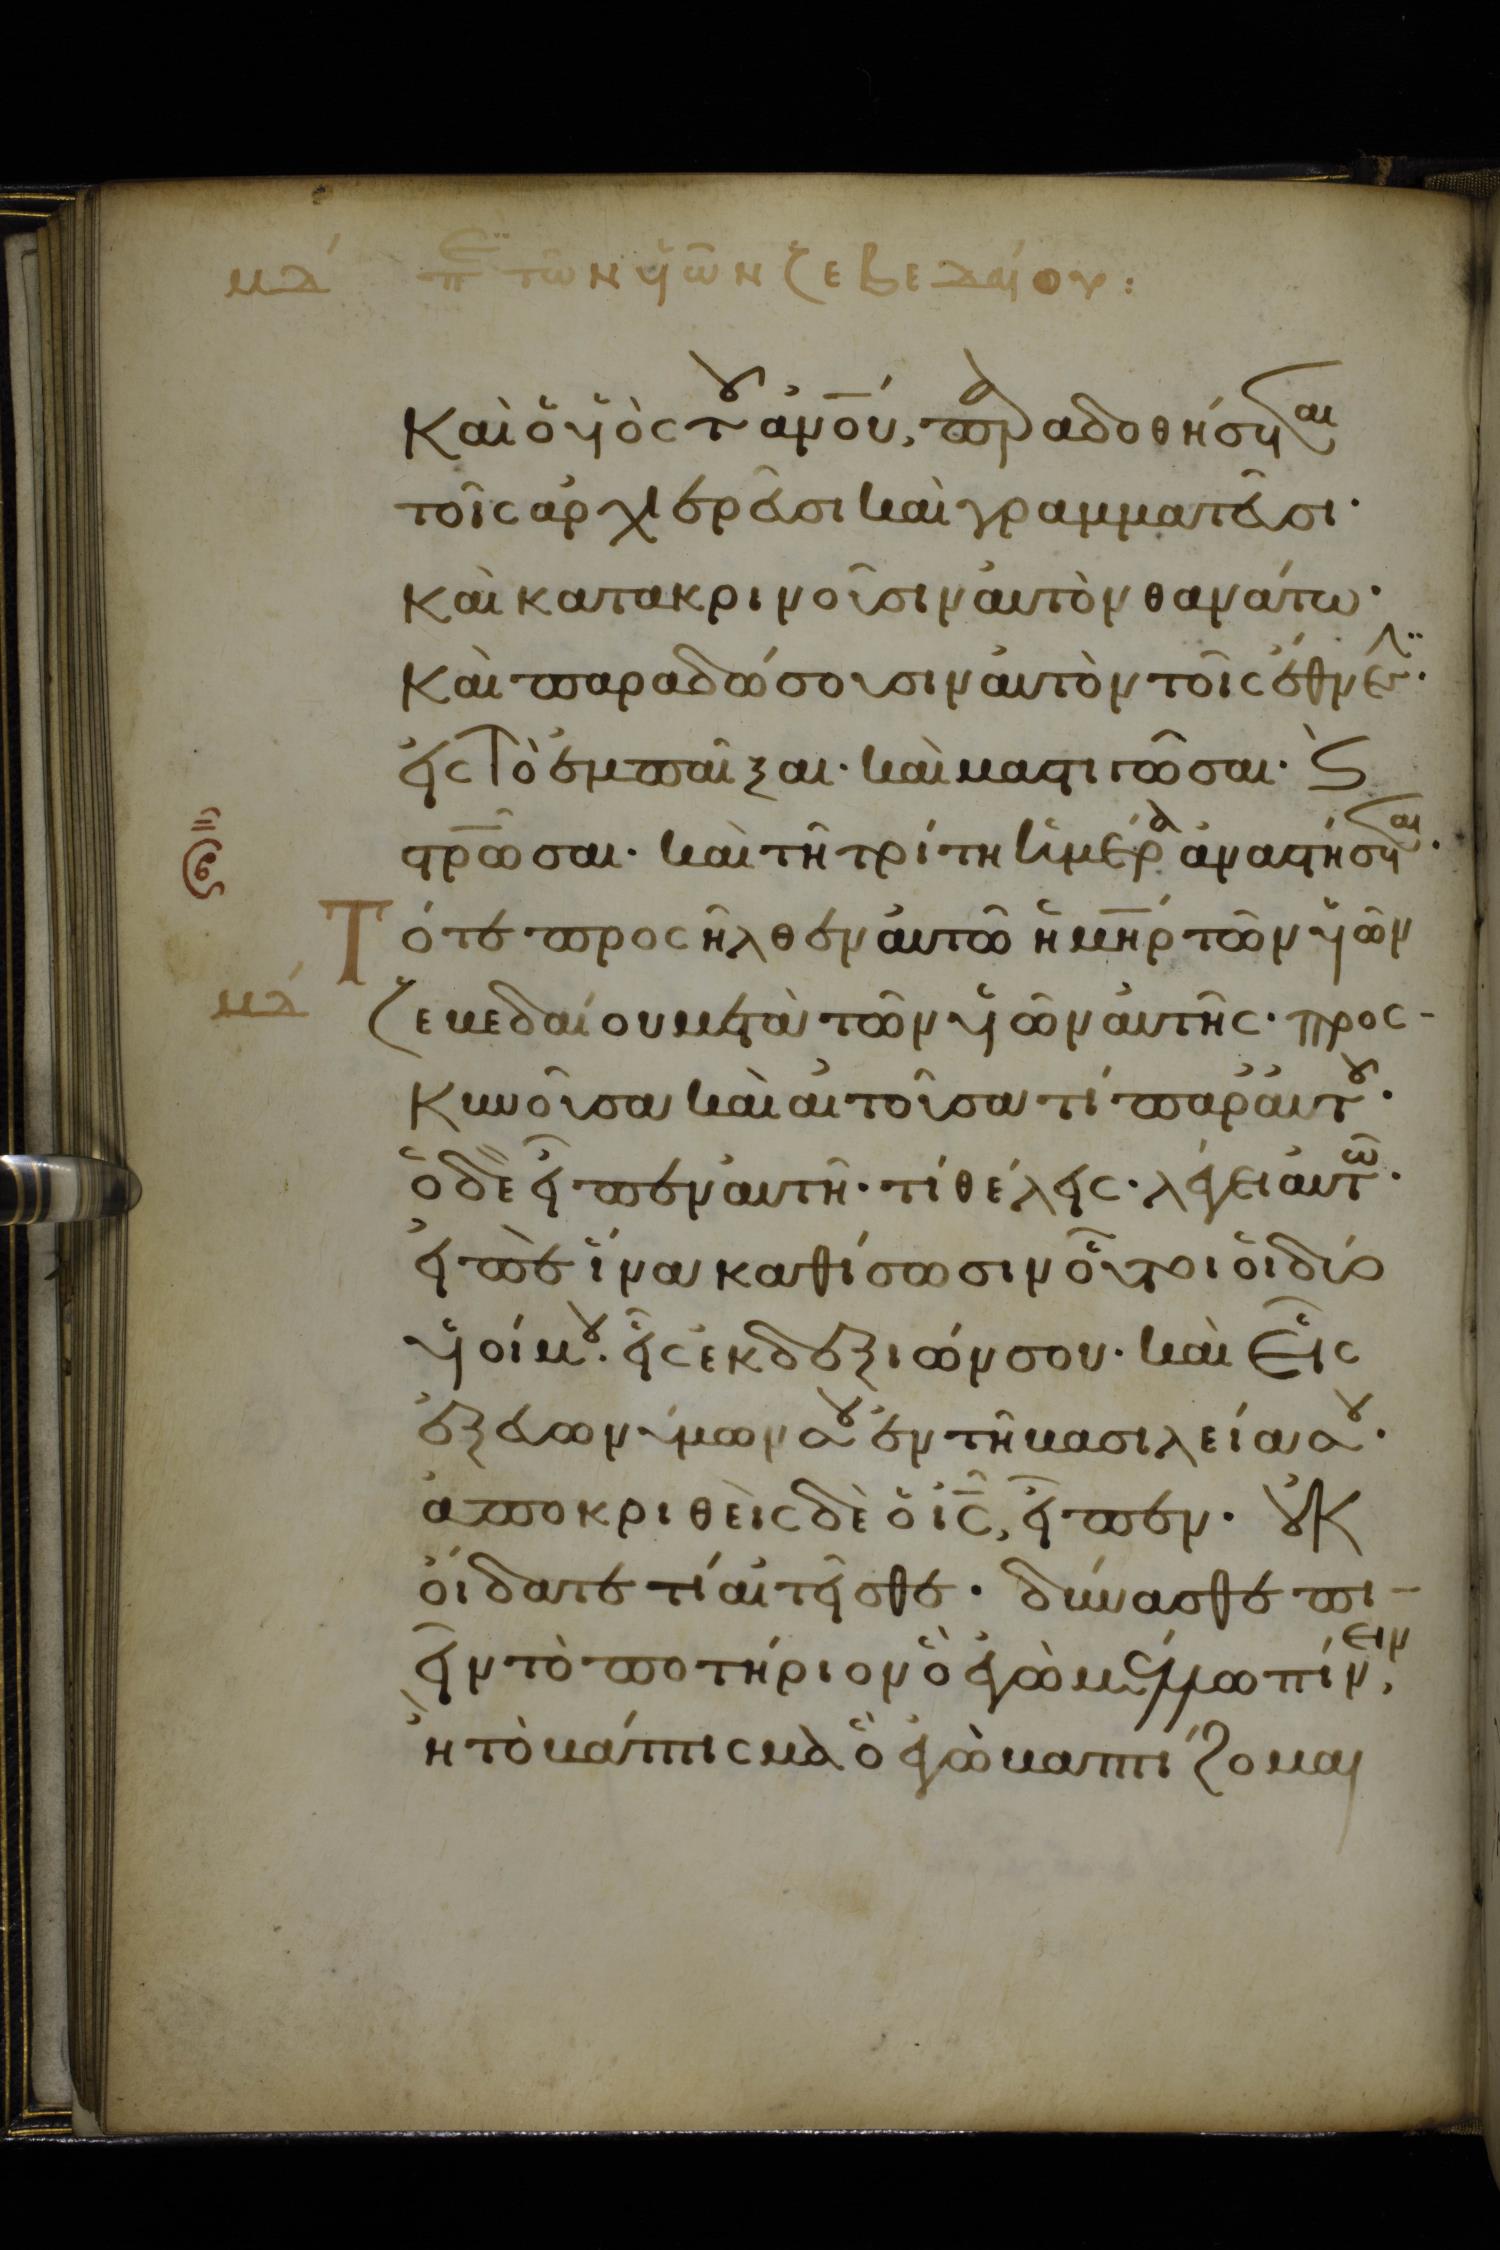 μα΄ πε τῶν υἱῶν ζεβεδαίου:
Καὶ ὁ υἱὸς τοῦ ἀνου, παραδοθήσεται
τοῖς ἀρχιερεῦσι καὶ γραμματεῦσι·
καὶ κατακρινοῦσιν αὐτὸν θανάτω·
καὶ παραδώσουσιν αὐτὸν τοῖς ἔθνεσι·
εἰς τὸ ἐμπαῖξαι· καὶ μαστιγῶσαι· καὶ
στρῶσαι· καὶ τῆ τρίτη ἡμέρα ἀναστήσεται·
Τότε προσῆλθεν αὐτῶ ἡ μηρ τῶν υἱῶν
μα΄
ζεβεδαίου μετὰ τῶν υἱῶν αὐτῆς· προσ-
κυνοῦσα καὶ αἰτοῦσα τί παρ' αὐτοῦ·
ὁ δὲ εἶπεν αὐτῆ· τί θέλεις· λέγει αὐτῶ·
εἰπὲ ἵνα καθίσωσιν οὗτοι οἱ δύο
υἱοί μου· εἷς ἐκ δεξιῶν σου· καὶ εἷς
ἐξ εὐωνύμων σου ἐν τῆ βασιλεία σου·
ἀποκριθεὶς δὲ ὁ ις, εἶπεν· οὐκ
οἴδατε τί αἰτεῖσθε· δύνασθε πι-
εῖν τὸ ποτήριον ὃ ἐγὼ μέλλω πίνειν,
ἢ τὸ βάπτισμα ὃ ἐγὼ βαπτίζομαι